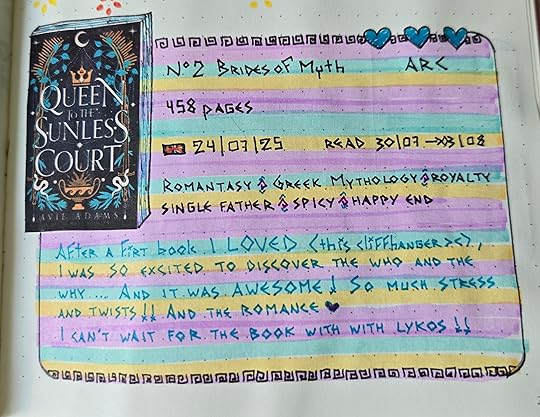 QUEEN
TO THE
SUNLESS
COURT
AVIE ADAMS
N°2 BRIDES OF MYTH ARC
458 PAGES
24/07/25 READ 30/07 → 03/08
ROMANTASY GREEK MYTHOLOGY ROYALTY
SINGLE FATHER SPICY HAPPY END
AFTER A FIRT BOOK I LOVED (THIS CLIFFHANGER ><),
I WAS SO EXCITED TO DISCOVER THE WHO AND THE
WHY ... AND IT WAS AWESOME! SO MUCH STRESS
AND TWISTS!! AND THE ROMANCE ♥
I CAN'T WAIT FOR THE BOOK WITH WITH LYKOS !!